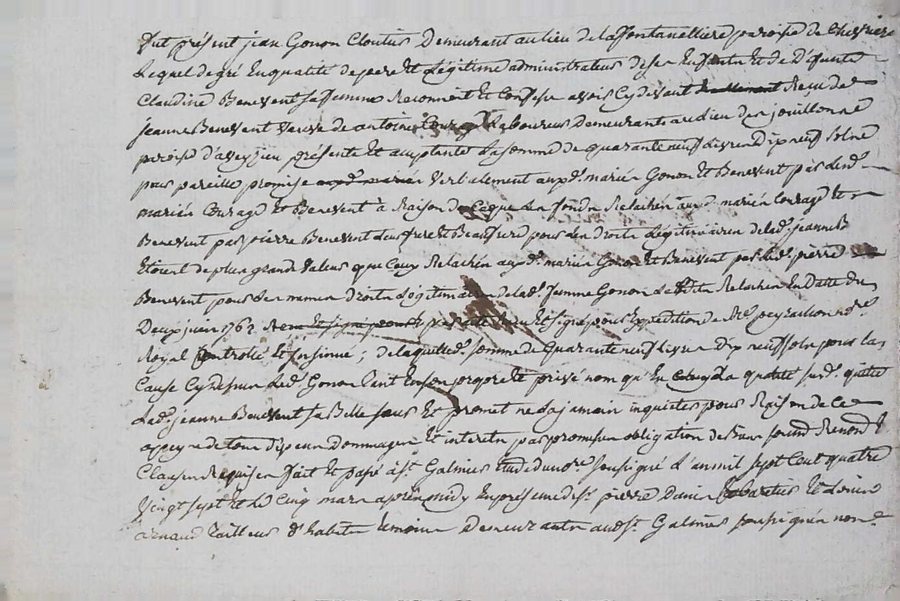 fut présent jean Gonon Cloutier Demeurant au lieu de la ffontanelliere paroisse de Chevriere
Lequel de gré En qualité de pere Et Légitime administrateur de ses Enfants Et de Défunte
Claudine Benevent sa femme Reconnoit Et Confesse avoir Cy devant Reçu de
jeanne Benevent veuve de antoine Courage Laboureur Demeurante au lieu de jouillonne
paroisse d'aveyzieu présente Et acceptante La somme de quarante neuf Livres Dix neuf sols
pour pareille promise verbalement auxd. mariés Gonon Et Benevent par lesd.
mariés Courage Et Benevent à Raison de Ce que les fonds Relachés auxd. mariés Courage Et
Benevent par pierre Benevent Leur frere Et Beaufrere pour les Droits Légitimaires de lad. jeanne B
Etoient de plus grande valeur que Ceux Relachés auxd. mariés Gonon Et Benevent par led. pierre
Benevent pour les memes Droits Légitimaires de lad. femme Gonon Relaches En Date du
Deux juin 1762 pour Expédition de Me peyraillon no.re
Royal Controllé Et Insinué ; de laquelle d. somme de Quarante neuf Livres Dix neuf sols pour la
Cause Cy dessus Led. Gonon tant En son propre Et privé nom qu'En lad. qualité susd. quitte
Lad. jeanne Benevent sa Belle soeur Et promet ne La jamais inquieter pour Raison de Ce
a peyne de tous Depens Dommages Et interets par promesses obligation de Biens soumd. Renond. &
Clauses Requises fait Et passé à St. Galmier Etude du no.re soussigné L'an mil sept Cent quatre
vingt sept Et Le Cinq mars après midy En présence de Sr. pierre Cabaretier Et Louis
arnaud Tailleur D'habits temoins Demeurants aud. St. Galmier soussignés non